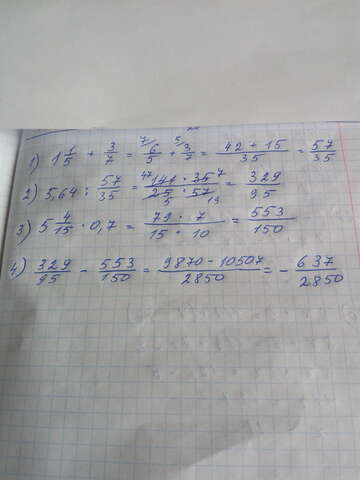 1) 1 1/5 + 3/7 = 7/ 6/5 + 5/ 3/7 = (42 + 15)/35 = 57/35
2) 5,64 : 57/35 = (47 141 · 35 7)/(25 5 · 57 19) = 329/95
3) 5 4/15 · 0,7 = (79 · 7)/(15 · 10) = 553/150
4) 329/95 - 553/150 = (9870 - 10507)/2850 = - 637/2850